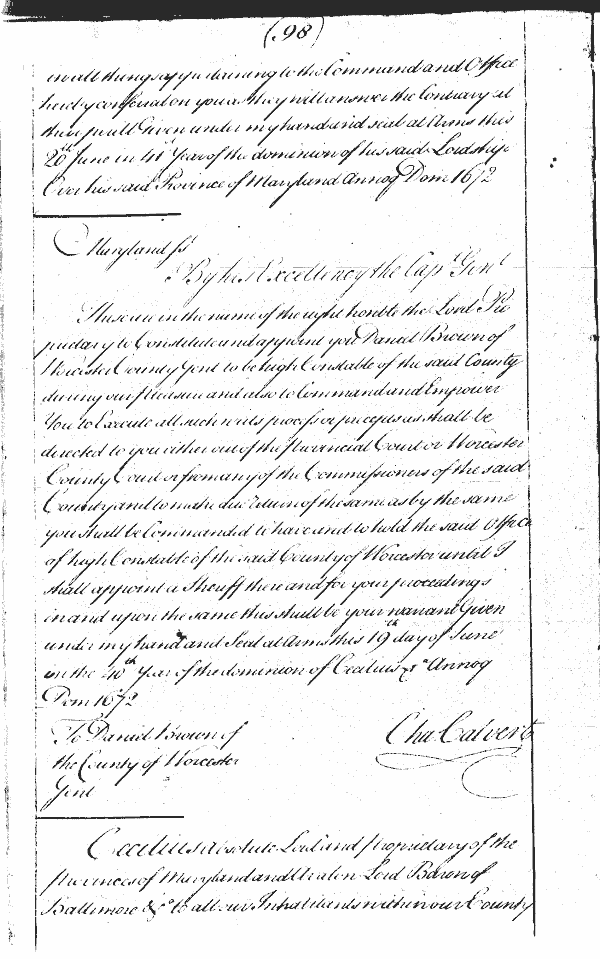 (.98)
in all things appertaining to the Command and Office
hereby conferred on you as they will answer the Contrary at
their perill Given under my hand and seal at Arms this
20th June in 41 Year of the dominion of his said Lordship
Over his said Province of Maryland Annoq Dom 1672
Maryland ss
By his Excellency the Capt Genl
These are in the name of the right honble the Lord Pro
prietary to Constitute and appoint you Daniel Brown of
Worcester County Gent to be high Constable of the said County
during our Pleasure and also to Command and Empower
You to Execute all such writs process or precepts as shall be
directed to you either out of the Provincial Court or Worcester
County Court or from any of the Commissioners of the said
County and to make due return of the same as by the same
you shall be Commanded to have and to hold the said Office
of high Constable of the said County of Worcester until I
shall appoint a Sheriff there and for your proceedings
in and upon the same this shall be your warrant Given
under my hand and Seal at Arms this 19th day of June
in the 40th Year of the dominion of Cecilius &ca Annoq
Dom 1672
To Daniel Brown of
the County of Worcester
Gent
Cha Calvert
Cecilius absolute Lord and proprietary of the
provinces of Maryland and Avalon Lord Baron of
Baltimore &ca to all our Inhabitants within our County